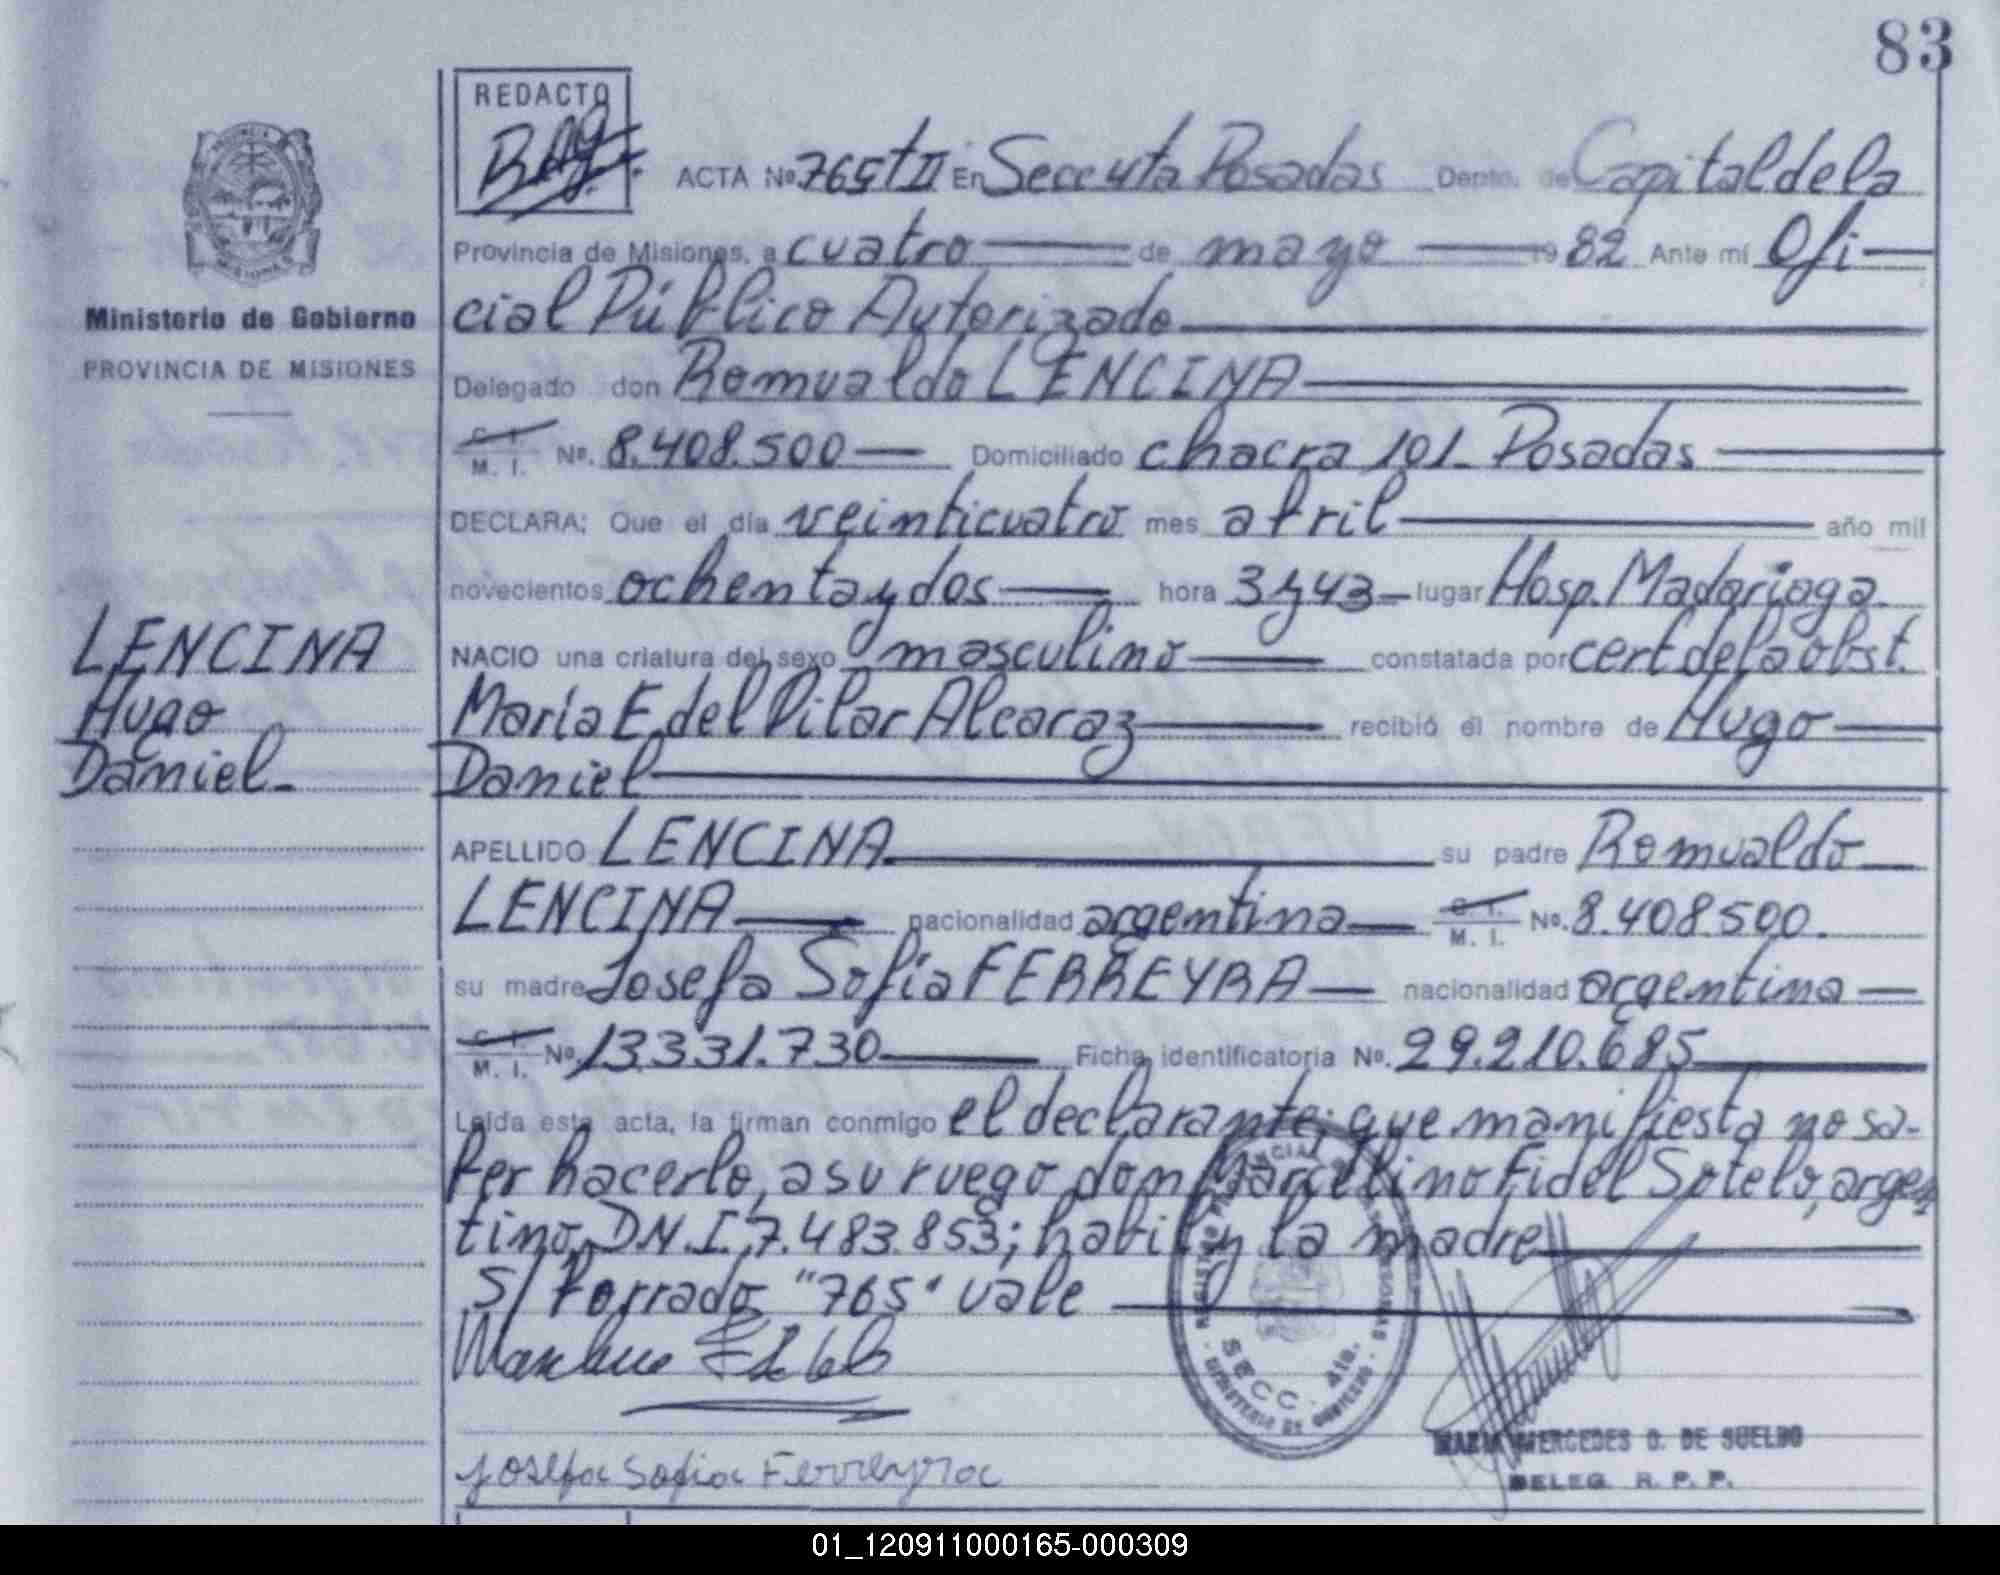 83
REDACTO
ACTA Nº 765 tII En Secc 4ta Posadas Depto. de Capital de la
Provincia de Misiones, a cuatro de mayo 1982 Ante mí Ofi
cial Público Autorizado
Ministerio de Gobierno
PROVINCIA DE MISIONES
Delegado don Romualdo LENCINA
C. I.
M. I. Nº. 8.408.500 Domiciliado chacra 101. Posadas
DECLARA: Que el día veinticuatro mes abril año mil
novecientos ochenta y dos hora 3 y 43 lugar Hosp. Madariaga
LENCINA
Hugo
Daniel.
NACIO una criatura del sexo masculino constatada por cert de la obst.
María E. del Pilar Alcaraz recibió el nombre de Hugo
Daniel
APELLIDO LENCINA su padre Romualdo
LENCINA nacionalidad argentina C. I.
M. I. Nº. 8.408.500.
su madre Josefa Sofía FERREYRA nacionalidad argentina
C. I.
M. I. Nº. 13.331.730 Ficha identificatoria Nº. 29.210.685
Leida esta acta, la firman conmigo el declarante; que manifiesta no sa-
ber hacerlo, a su ruego don Marcelino Fidel Sotelo, argen
tino, D.N.I. 7.483.853; habil y la madre
S/ borrado "765" vale
SECC. 4ta.
MINISTERIO DE GOBIERNO
Josefa Sofia Ferreyra
MARIA MERCEDES D. DE SUELDO
DELEG. R. P. P.
01_120911000165-000309